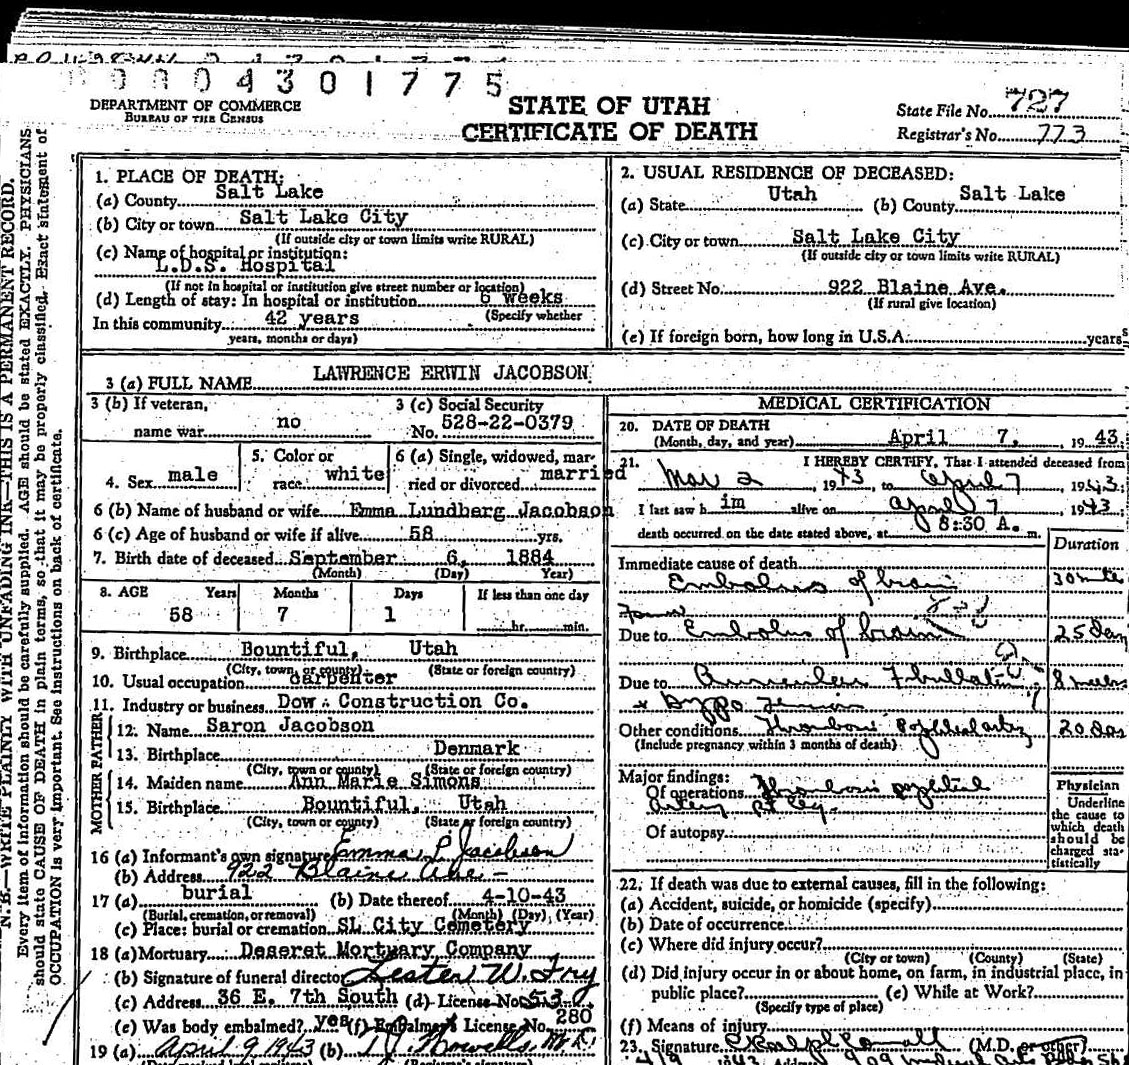 0004301775
DEPARTMENT OF COMMERCE
BUREAU OF THE CENSUS
STATE OF UTAH
CERTIFICATE OF DEATH
State File No. 727
Registrar's No. 773
N. B.—WRITE PLAINLY WITH UNFADING INK—THIS IS A PERMANENT RECORD.
Every item of information should be carefully supplied. AGE should be stated EXACTLY. PHYSICIANS
should state CAUSE OF DEATH in plain terms, so that it may be properly classified. Exact statement of
OCCUPATION is very important. See instructions on back of certificate.
1. PLACE OF DEATH:
(a) County Salt Lake
(b) City or town Salt Lake City
(If outside city or town limits write RURAL)
(c) Name of hospital or institution:
L.D.S. Hospital
(If not in hospital or institution give street number or location)
(d) Length of stay: In hospital or institution 6 weeks
(Specify whether
In this community 42 years
years, months or days)
2. USUAL RESIDENCE OF DECEASED:
(a) State Utah (b) County Salt Lake
(c) City or town Salt Lake City
(If outside city or town limits write RURAL)
(d) Street No. 922 Blaine Ave.
(If rural give location)
(e) If foreign born, how long in U.S.A. years
3 (a) FULL NAME LAWRENCE ERWIN JACOBSON
3 (b) If veteran,
name war no
3 (c) Social Security
No. 528-22-0379
4. Sex male
5. Color or
race white
6 (a) Single, widowed, mar-
ried or divorced married
6 (b) Name of husband or wife Emma Lundberg Jacobson
6 (c) Age of husband or wife if alive 58 yrs.
7. Birth date of deceased September 6, 1884
(Month) (Day) Year)
8. AGE Years Months Days If less than one day
58 7 1 hr. min.
9. Birthplace Bountiful, Utah
(City, town, or county) (State or foreign country)
10. Usual occupation carpenter
11. Industry or business Dow Construction Co.
FATHER
12. Name Saron Jacobson
13. Birthplace Denmark
(City, town or county) (State or foreign country)
MOTHER
14. Maiden name Ann Marie Simons
15. Birthplace Bountiful, Utah
(City, town or county) (State or foreign country)
16 (a) Informant's own signature Emma L. Jacobson
(b) Address 922 Blaine Ave-
17 (a) burial (b) Date thereof 4-10-43
(Burial, cremation, or removal) (Month) (Day) (Year)
(c) Place: burial or cremation SL City Cemetery
18 (a) Mortuary Deseret Mortuary Company
(b) Signature of funeral director Lester W. Fry
(c) Address 36 E. 7th South (d) License No. 53
(e) Was body embalmed? yes (f) Embalmer License No. 280
19 (a) April 9 1943 (b)
MEDICAL CERTIFICATION
20. DATE OF DEATH
(Month, day, and year) April 7, 1943
21. I HEREBY CERTIFY, That I attended deceased from
Mar 2, 1943 to April 7 1943
I last saw h im alive on April 7 1943
death occurred on the date stated above, at 8:30 A. m.
Duration
Immediate cause of death
Embolus of brain
Due to Embolus of brain 25 days
Due to 8 weeks
Other conditions 20 das
(Include pregnancy within 3 months of death)
Major findings:
Of operations Thrombosis popliteal
artery
Of autopsy
Physician
Underline
the cause to
which death
should be
charged sta-
tistically
22. If death was due to external causes, fill in the following:
(a) Accident, suicide, or homicide (specify)
(b) Date of occurrence
(c) Where did injury occur?
(City or town) (County) (State)
(d) Did injury occur in or about home, on farm, in industrial place, in
public place? (e) While at Work?
(Specify type of place)
(f) Means of injury
23. Signature (M.D. or other)